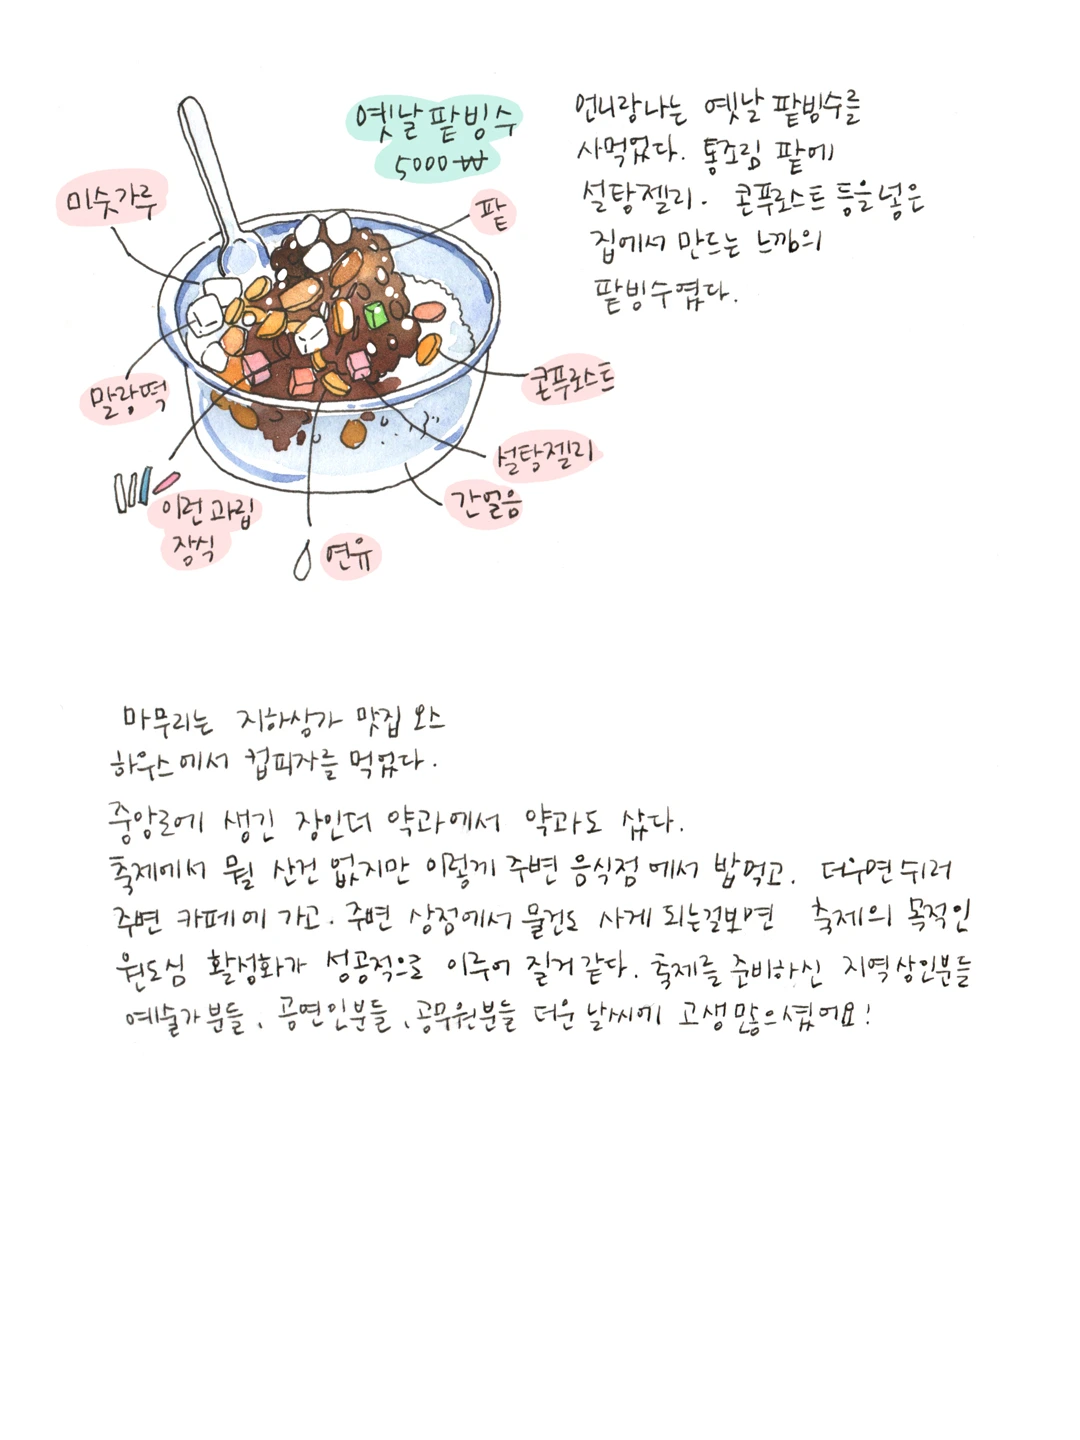 옛날 팥빙수
5000₩
미숫가루
팥
말랑떡
콘푸로스트
설탕젤리
간얼음
이런 과립
장식
연유
언니랑나는 옛날 팥빙수를
사먹었다. 통조림 팥에
설탕젤리. 콘푸로스트 등을넣은
집에서 만드는 느낌의
팥빙수였다.
마무리는 지하상가 맛집 오스
하우스에서 컵피자를 먹었다.
중앙로에 생긴 장인더 약과에서 약과도 샀다.
축제에서 뭘 산건 없지만 이렇게 주변 음식점에서 밥먹고. 더우면 쉬러
주변 카페에 가고. 주변 상점에서 물건도 사게 되는걸보면 축제의 목적인
원도심 활성화가 성공적으로 이루어 질거 같다. 축제를 준비하신 지역상인분들
예술가분들, 공연인분들, 공무원분들 더운 날씨에 고생많으셨어요!